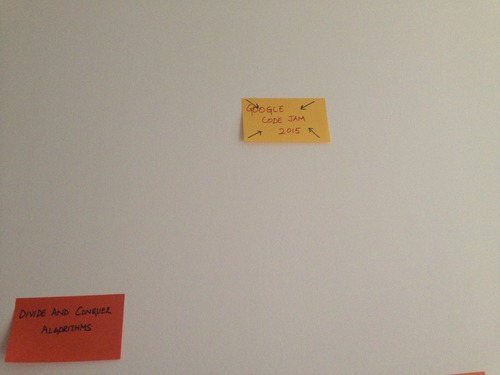 GOOGLE
CODE JAM
2015
DIVIDE AND CONQUER
ALGORITHMS